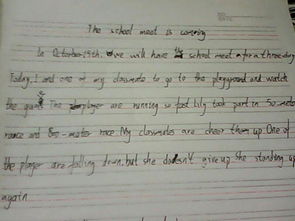 The school meet is coming
In October 19th. we will have the school meet for a three-day
Today, I and one of my classmate to go to the playground and watch
the game The player are running so fast lily took part in 50-meter
race and 800-meter race My classmates are cheer them up One of
the player are falling down, but she doesn't give up the standing up
again